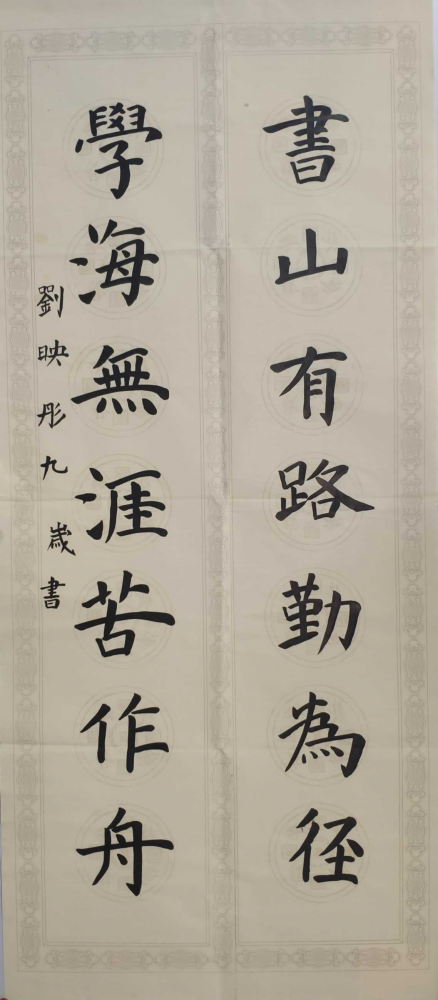 書山有路勤為徑
學海無涯苦作舟
劉映彤九歲書